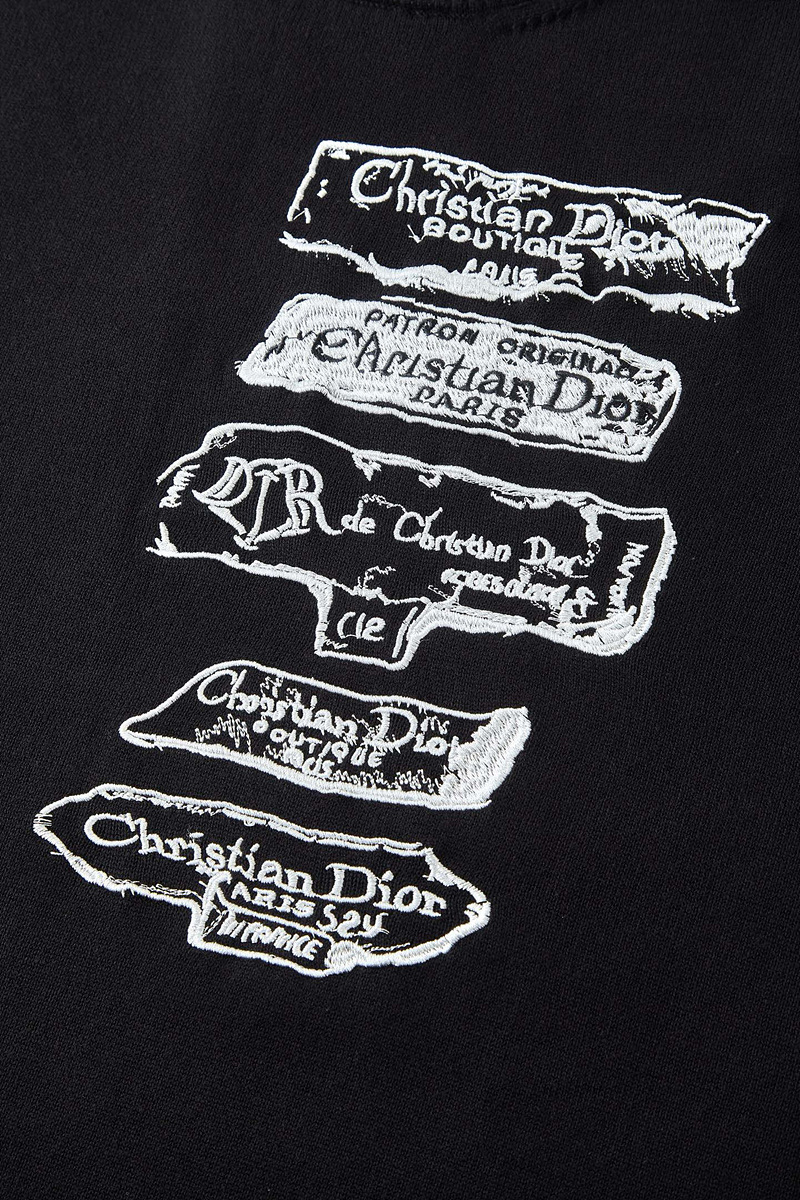 Christian Dior
BOUTIQUE
PARIS
PATRON ORIGINAL
Christian Dior
PARIS
de Christian Dior
Christian Dior
BOUTIQUE
PARIS
Christian Dior
PARIS S24